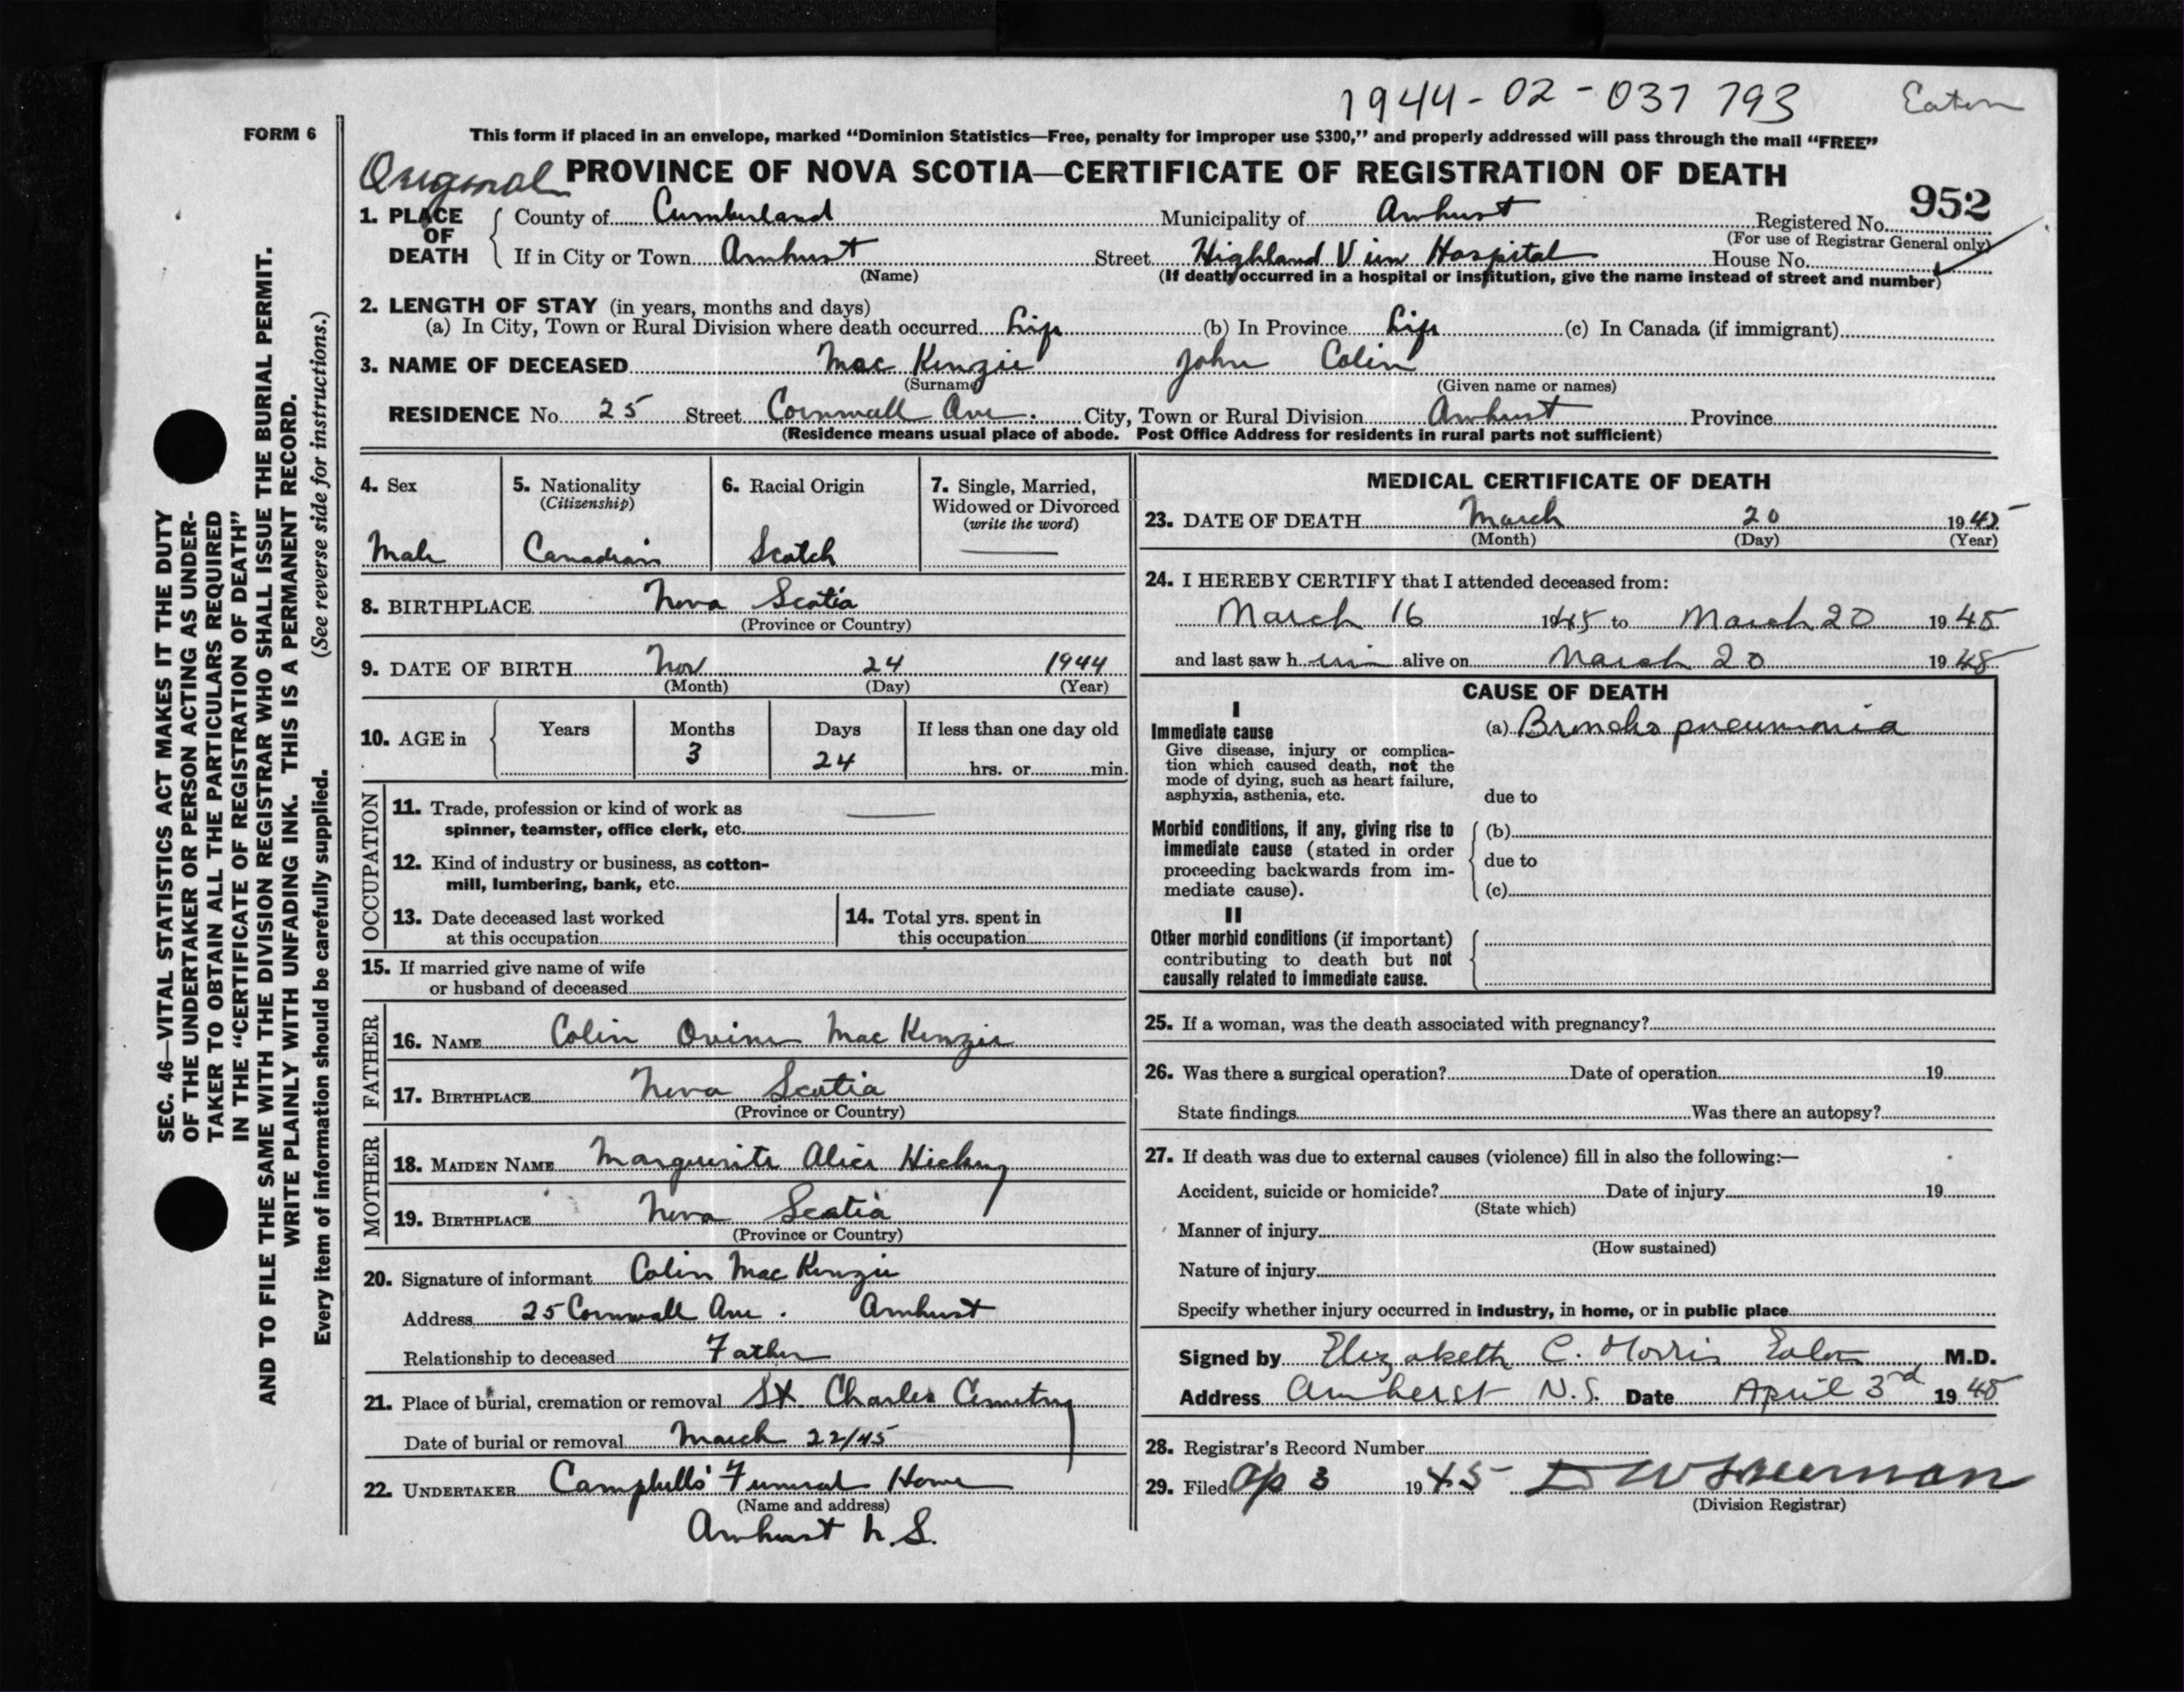 1944-02-037 793 Eaton
FORM 6
This form if placed in an envelope, marked "Dominion Statistics—Free, penalty for improper use $300," and properly addressed will pass through the mail "FREE"
Original PROVINCE OF NOVA SCOTIA—CERTIFICATE OF REGISTRATION OF DEATH
952
1. PLACE OF DEATH
County of Cumberland Municipality of Amherst Registered No.
(For use of Registrar General only)
If in City or Town Amherst Street Highland View Hospital House No.
(Name) (If death occurred in a hospital or institution, give the name instead of street and number)
2. LENGTH OF STAY (in years, months and days)
(a) In City, Town or Rural Division where death occurred Life (b) In Province Life (c) In Canada (if immigrant)
3. NAME OF DECEASED Mac Kenzie John Colin
(Surname) (Given name or names)
RESIDENCE No. 25 Street Cornwall Ave. City, Town or Rural Division Amherst Province
(Residence means usual place of abode. Post Office Address for residents in rural parts not sufficient)
4. Sex
Male
5. Nationality
(Citizenship)
Canadian
6. Racial Origin
Scotch
7. Single, Married,
Widowed or Divorced
(write the word)
8. BIRTHPLACE Nova Scotia
(Province or Country)
9. DATE OF BIRTH Nov 24 1944
(Month) (Day) (Year)
10. AGE in
Years Months Days If less than one day old
3 24 hrs. or min.
OCCUPATION
11. Trade, profession or kind of work as
spinner, teamster, office clerk, etc.
12. Kind of industry or business, as cotton-
mill, lumbering, bank, etc.
13. Date deceased last worked
at this occupation
14. Total yrs. spent in
this occupation
15. If married give name of wife
or husband of deceased
FATHER
16. NAME Colin Mac Kenzie
17. BIRTHPLACE Nova Scotia
(Province or Country)
MOTHER
18. MAIDEN NAME Marguerite Alice Hickey
19. BIRTHPLACE Nova Scotia
(Province or Country)
20. Signature of informant Colin Mac Kenzie
Address 25 Cornwall Ave. Amherst
Relationship to deceased Father
21. Place of burial, cremation or removal St. Charles Cemetry
Date of burial or removal March 22/45
22. UNDERTAKER Campbells' Funeral Home
(Name and address)
Amherst N.S.
MEDICAL CERTIFICATE OF DEATH
23. DATE OF DEATH March 20 1945
(Month) (Day) (Year)
24. I HEREBY CERTIFY that I attended deceased from:
March 16 1945 to March 20 1945
and last saw h im alive on March 20 1945
CAUSE OF DEATH
I
Immediate cause
Give disease, injury or complica-
tion which caused death, not the
mode of dying, such as heart failure,
asphyxia, asthenia, etc.
(a) Broncho pneumonia
due to
Morbid conditions, if any, giving rise to
immediate cause (stated in order
proceeding backwards from im-
mediate cause).
(b)
due to
(c)
II
Other morbid conditions (if important)
contributing to death but not
causally related to immediate cause.
25. If a woman, was the death associated with pregnancy?
26. Was there a surgical operation? Date of operation 19
State findings Was there an autopsy?
27. If death was due to external causes (violence) fill in also the following:—
Accident, suicide or homicide? Date of injury 19
(State which)
Manner of injury
(How sustained)
Nature of injury
Specify whether injury occurred in industry, in home, or in public place
Signed by Elizabeth C. Morris Eaton M.D.
Address Amherst N.S. Date April 3rd 1945
28. Registrar's Record Number
29. Filed Ap 3 1945
(Division Registrar)
SEC. 46—VITAL STATISTICS ACT MAKES IT THE DUTY
OF THE UNDERTAKER OR PERSON ACTING AS UNDER-
TAKER TO OBTAIN ALL THE PARTICULARS REQUIRED
IN THE "CERTIFICATE OF REGISTRATION OF DEATH"
AND TO FILE THE SAME WITH THE DIVISION REGISTRAR WHO SHALL ISSUE THE BURIAL PERMIT.
WRITE PLAINLY WITH UNFADING INK. THIS IS A PERMANENT RECORD.
Every item of information should be carefully supplied. (See reverse side for instructions.)